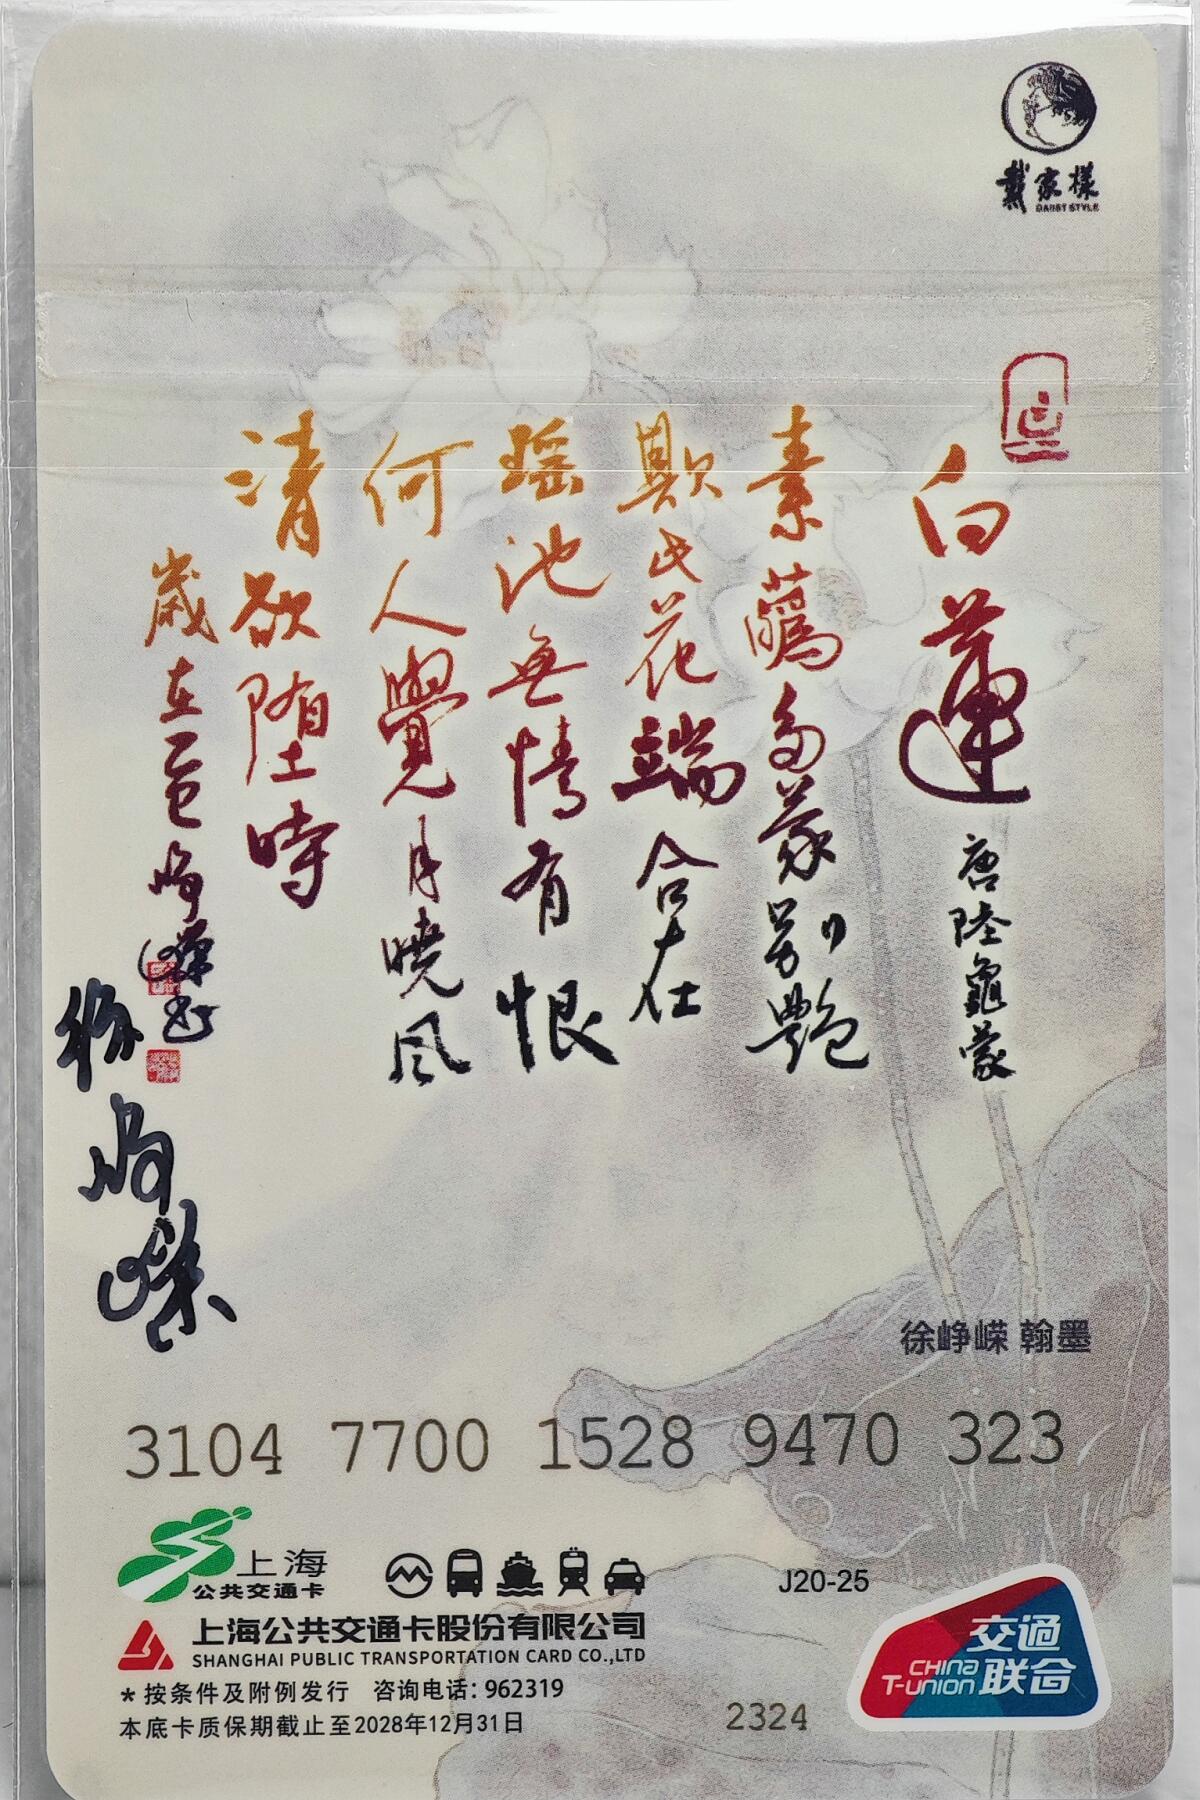 戴家樣
DAISY STYLE
白蓮
唐陸龜蒙
素蘤多蒙別艷
欺此花端合在
瑤池無情有恨
何人覺月曉風
清欲堕時
歲在乙巳崢嶸书
徐崢嶸
徐峥嵘 翰墨
3104 7700 1528 9470 323
上海
公共交通卡
J20-25
上海公共交通卡股份有限公司
SHANGHAI PUBLIC TRANSPORTATION CARD CO.,LTD
*按条件及附例发行 咨询电话:962319
本底卡质保期截止至2028年12月31日
2324
交通
联合
CHINA
T-UNION